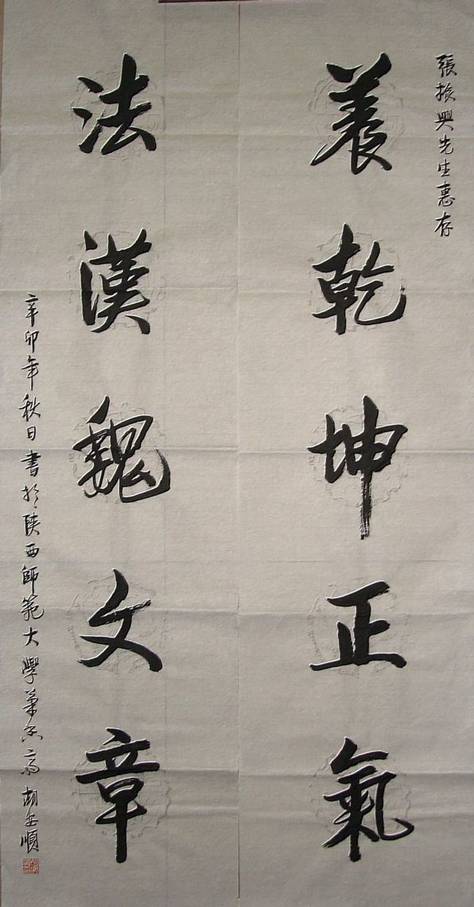 張振興先生惠存
養乾坤正氣
法漢魏文章
辛卯年秋日書於陝西師範大學菊香齋胡安順